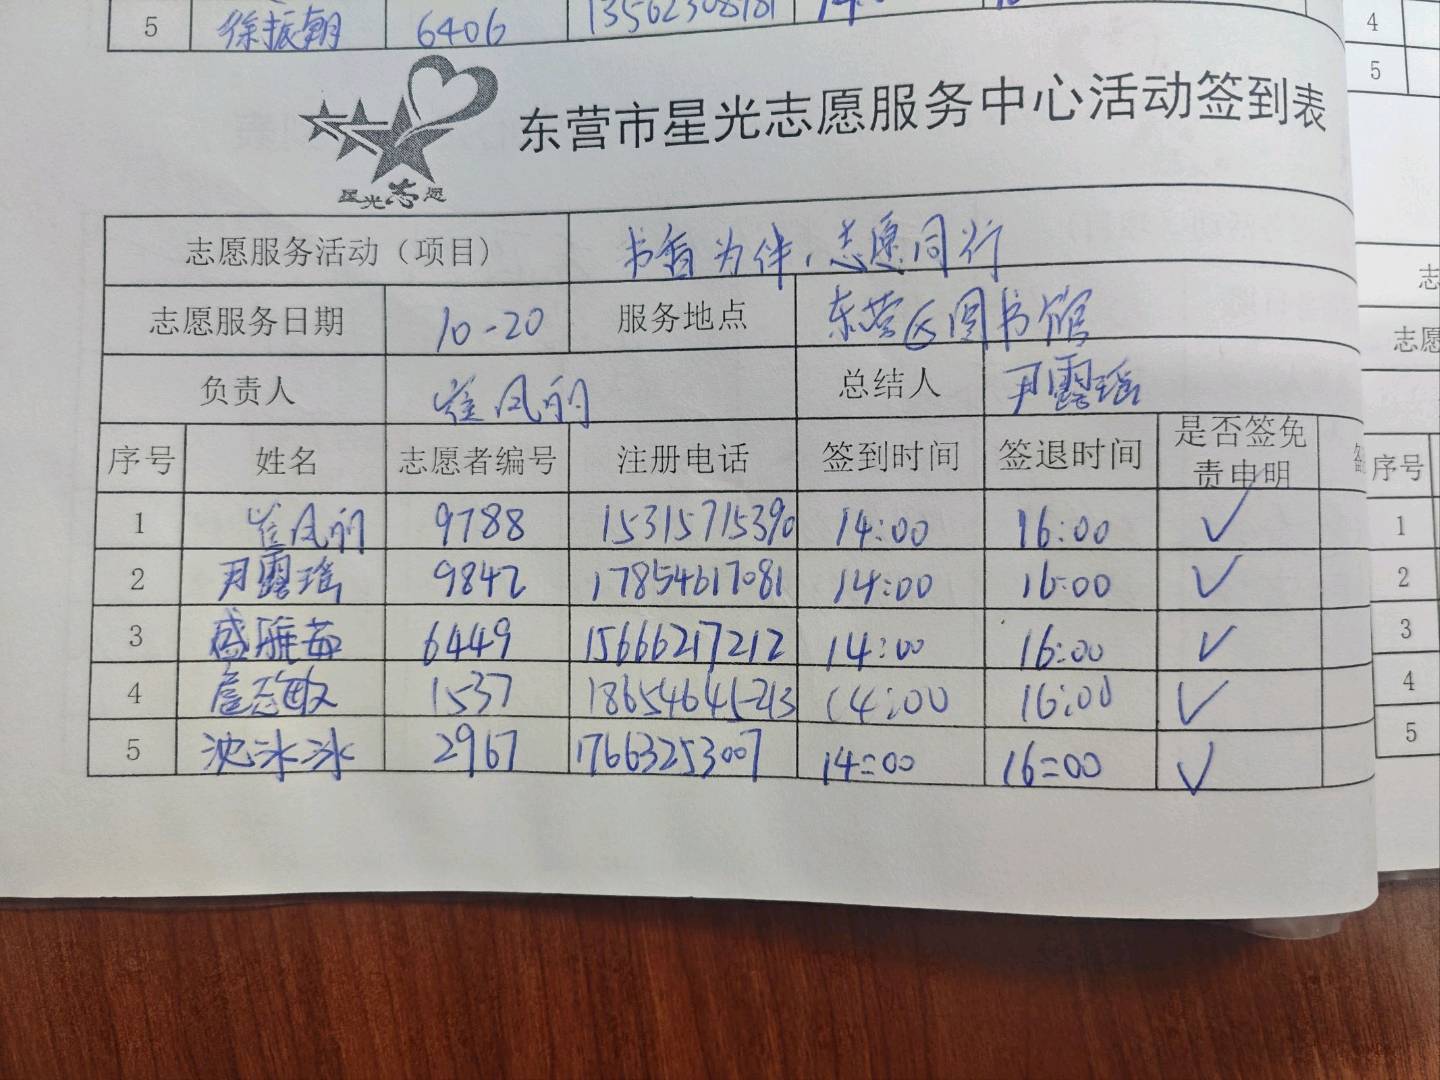 5 徐振朝 6406
东营市星光志愿服务中心活动签到表
星光志愿
志愿服务活动（项目） 书香为伴，志愿同行
志愿服务日期 10-20 服务地点 东营区图书馆
负责人 崔凤丽 总结人 尹露瑶
序号 姓名 志愿者编号 注册电话 签到时间 签退时间 是否签免
责申明
1 崔凤丽 9788 15315715390 14:00 16:00 ✓
2 尹露瑶 9842 17854617081 14:00 16:00 ✓
3 盛雅茹 6449 15666217212 14:00 16:00 ✓
4 1537 18654645213 14:00 16:00 ✓
5 沈冰冰 2967 17663253007 14:00 16:00 ✓
4
5
志
志愿
序号
1
2
3
4
5